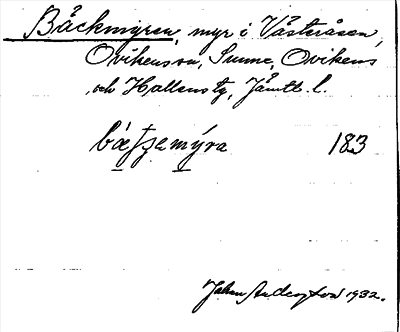 Bäckmyren, myr i Västeråsen,
Ovikens sn, Sunne, Ovikens
och Hallens tg, Jämtl. l.
183
Johan Andersson 1932.